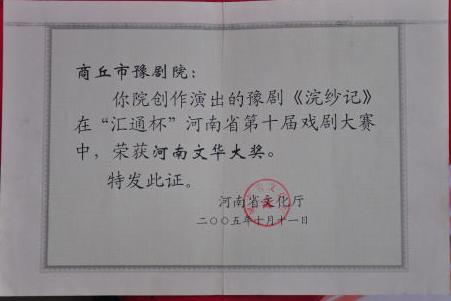 商丘市豫剧院：
你院创作演出的豫剧《浣纱记》
在“汇通杯”河南省第十届戏剧大赛
中，荣获河南文华大奖。
特发此证。
河南省文化厅
二〇〇五年十月十一日